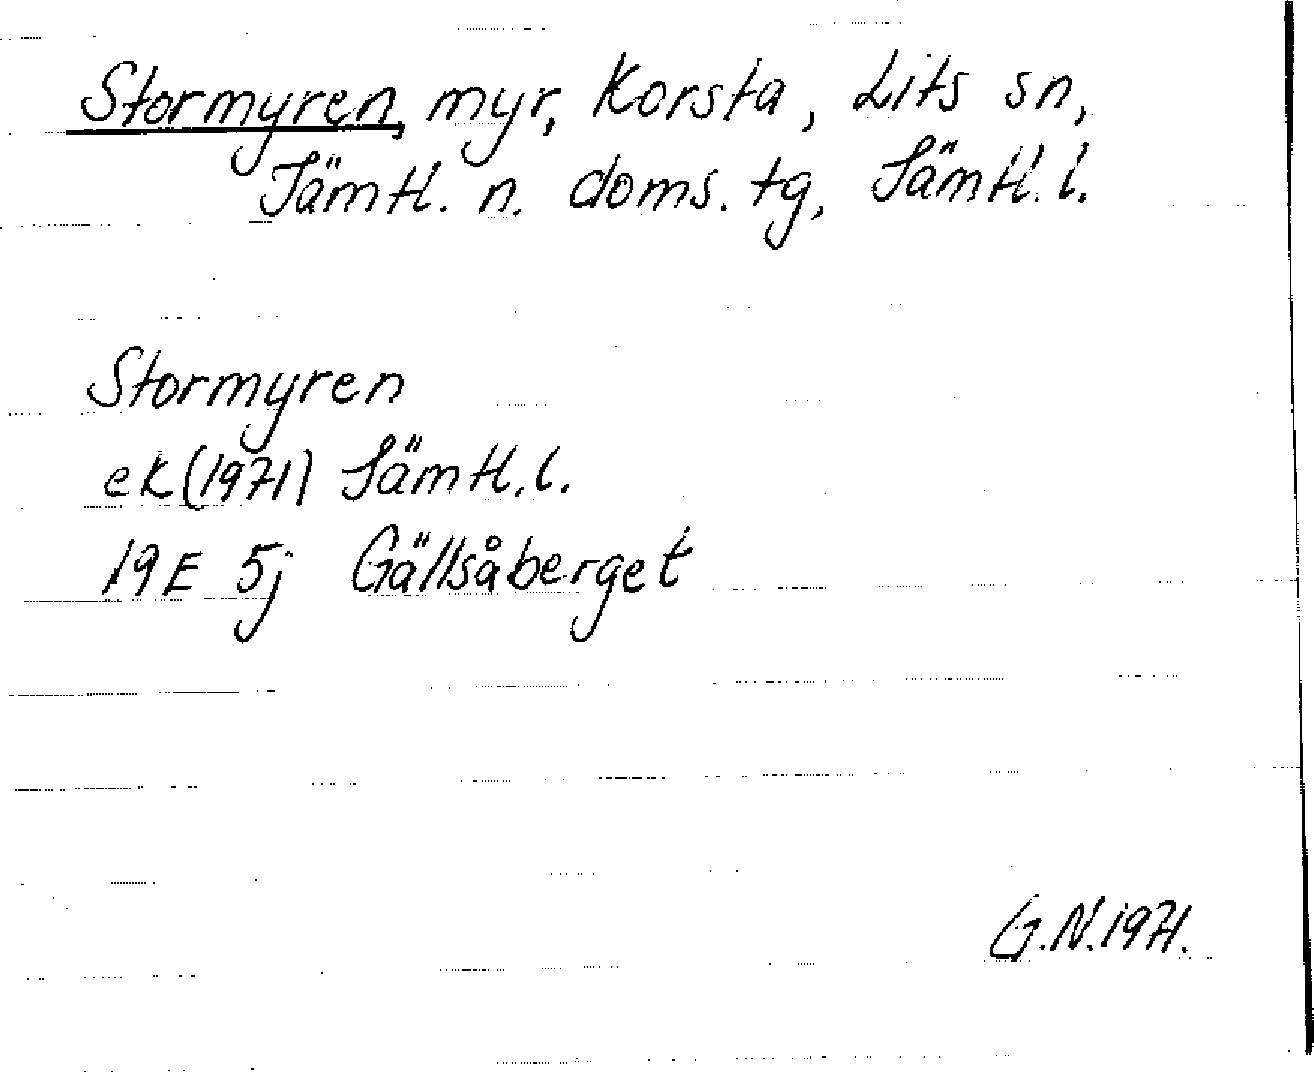 Stormyren, myr, Korsta, Lits sn,
Jämtl. n. doms. tg, Jämtl. l.
Stormyren
ek (1971) Jämtl. l.
19E 5j Gällsåberget
G.N. 1971.